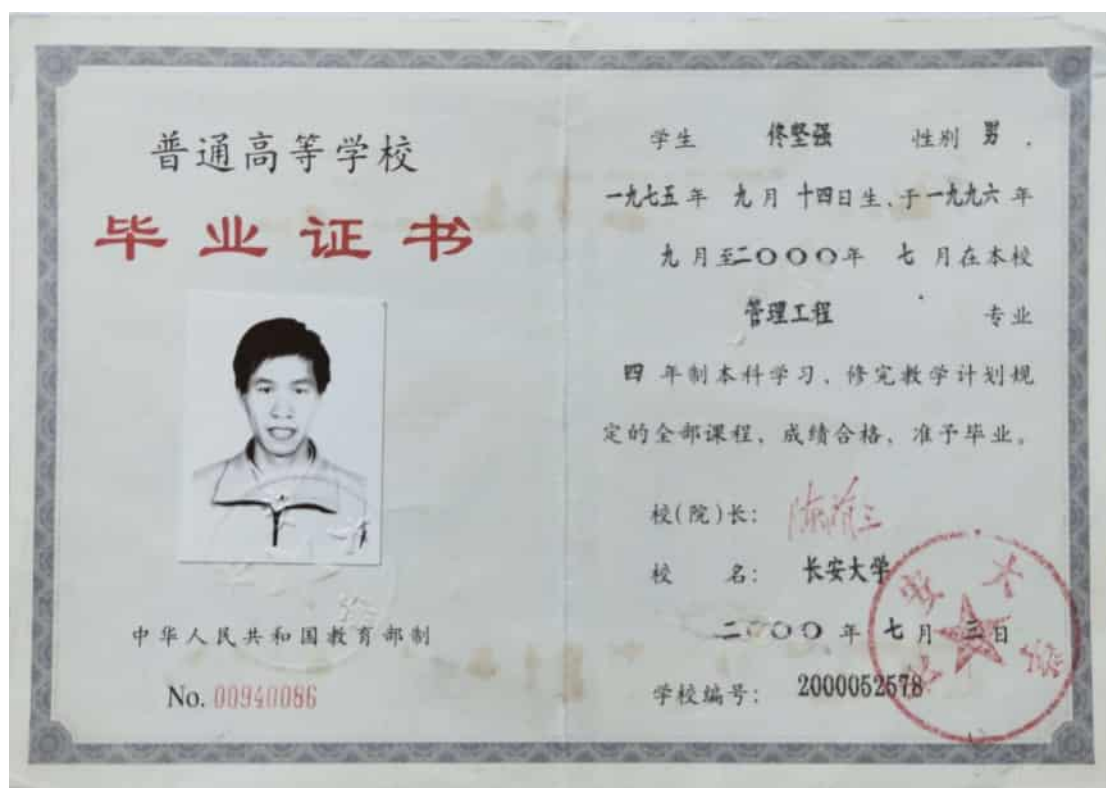 普通高等学校
毕业证书
中华人民共和国教育部制
No. 00940086
学生 佟坚强 性别 男.
一九七五年 九月 十四日生、于一九九六年
九月至二〇〇〇年 七月在本校
管理工程 专业
四 年制本科学习、修完教学计划规
定的全部课程、成绩合格、准予毕业。
校(院)长:
校 名: 长安大学
二〇〇〇年 七月 三日
学校编号: 2000052578